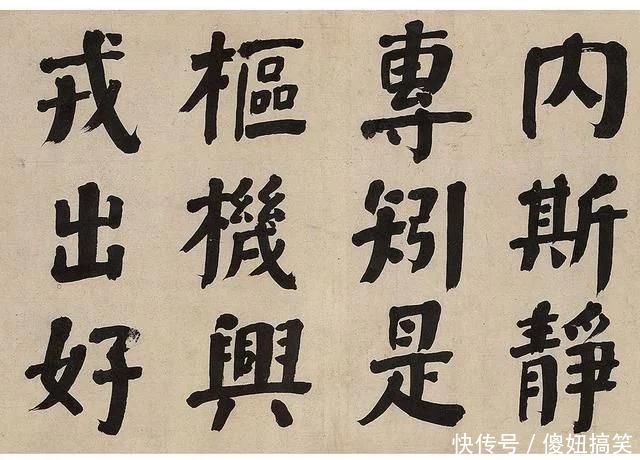 内斯靜
專矧是
樞機興
戎出好
快传号/傻妞搞笑